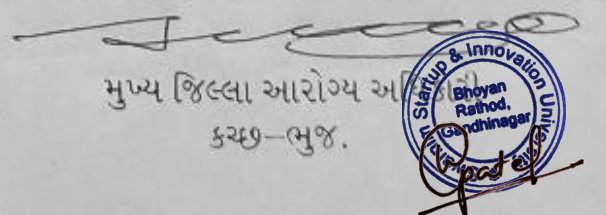 મુખ્ય જિલ્લા આરોગ્ય અધિકારી
કચ્છ-ભુજ.
Startup & Innovation
Bhoyan
Rathod,
Gandhinagar
patel